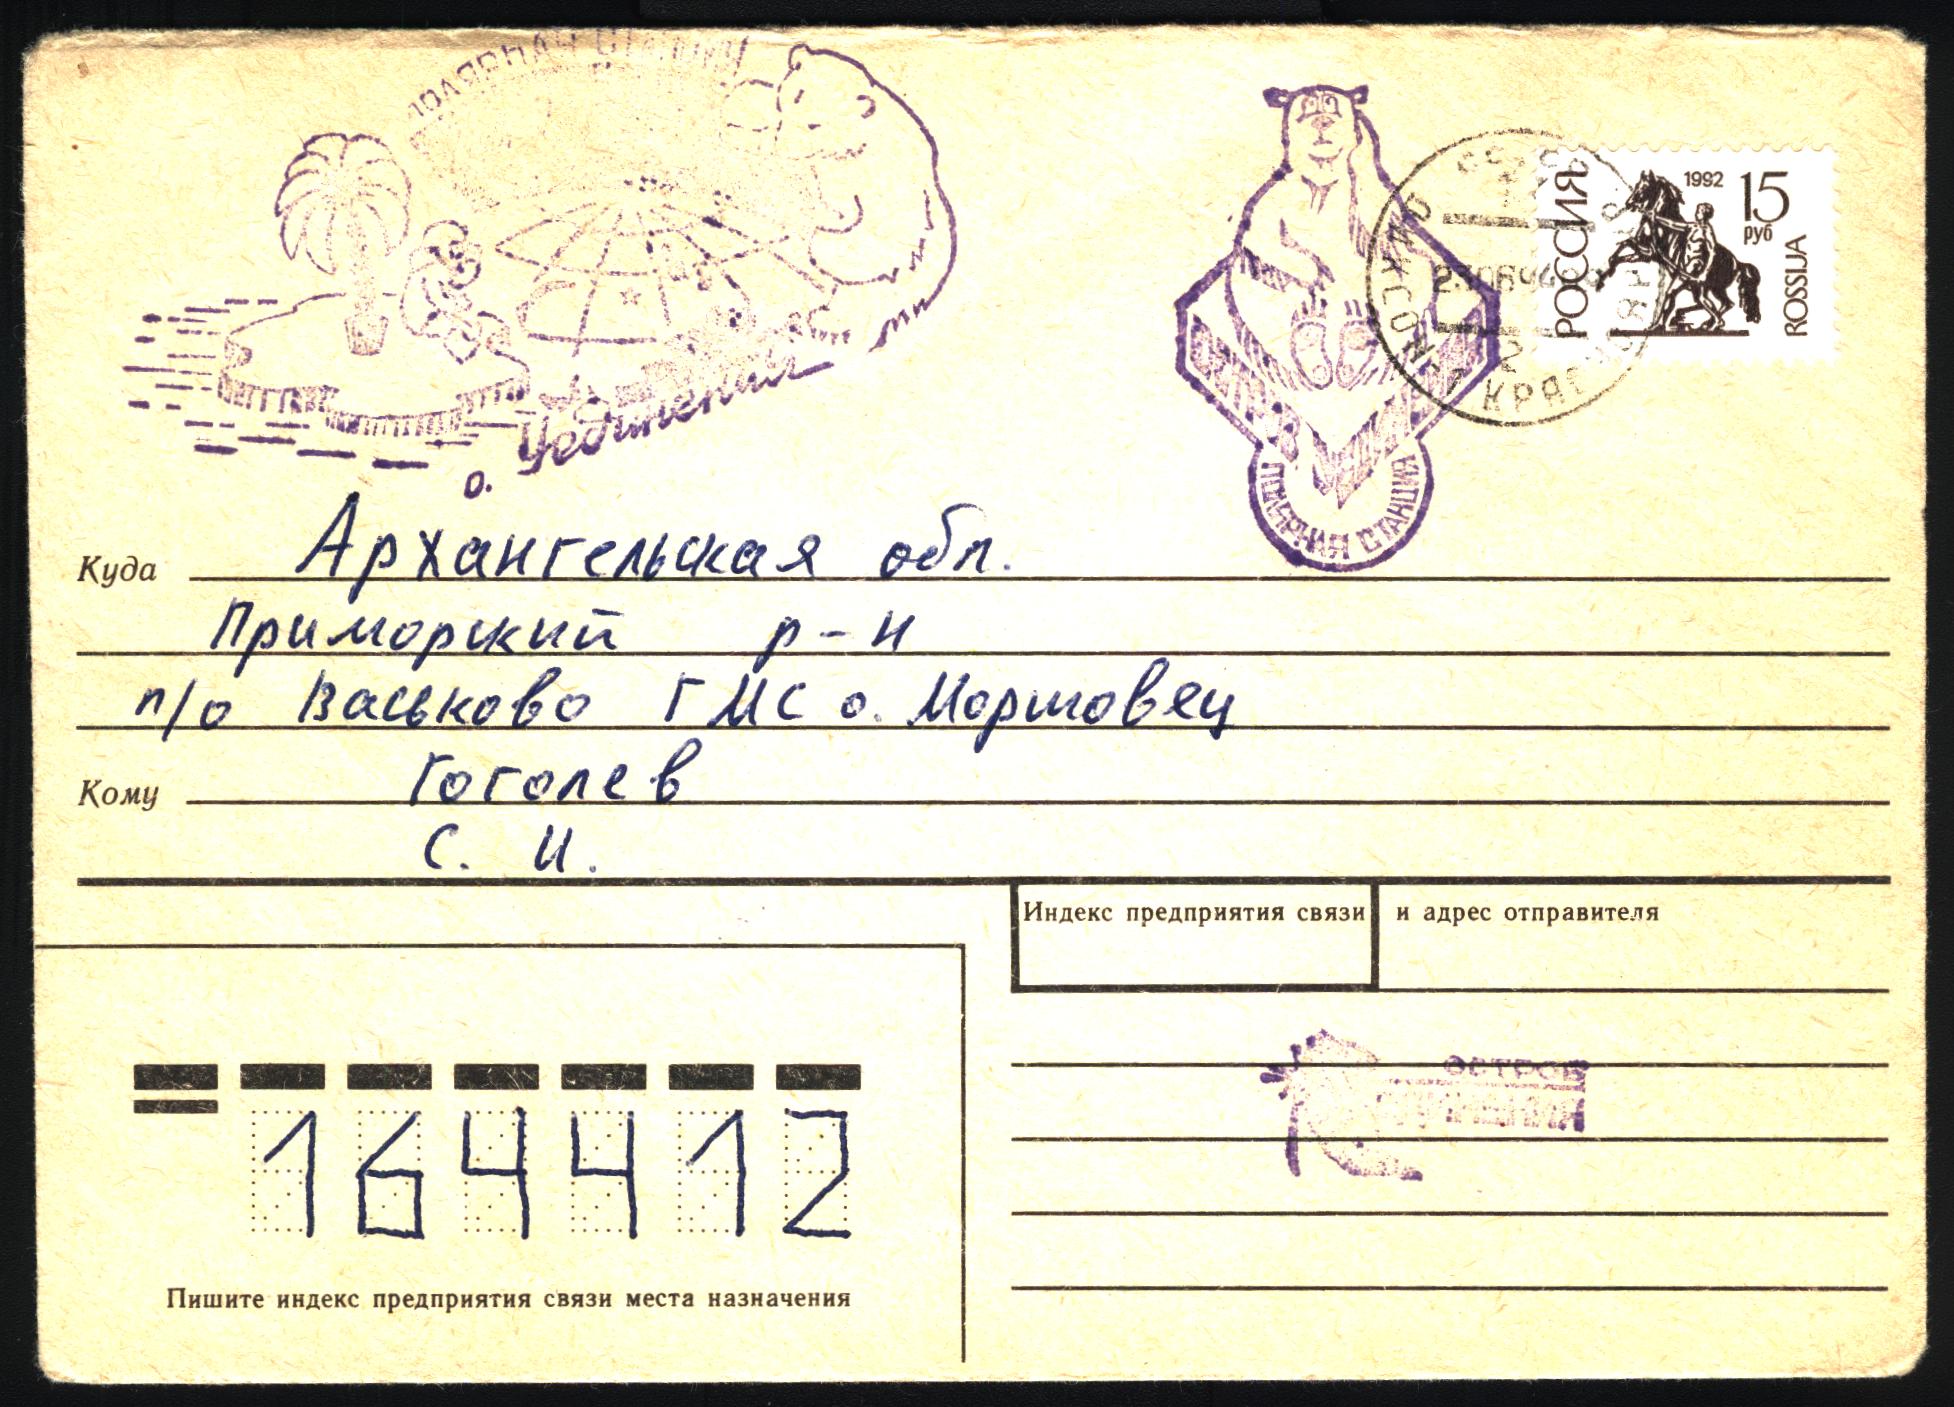 ПОЛЯРНАЯ СТАНЦИЯ
о. Уединения
ОСТРОВ УЕДИНЕНИЯ
ПОЛЯРНАЯ СТАНЦИЯ
ДИКСОН КРАСНОЯРСК
2
РОССИЯ
1992 15
руб
ROSSIJA
Куда Архангельская обл.
Приморский р-н
п/о Васьково ГМС о. Моржовец
Кому Гоголев
С. И.
Индекс предприятия связи и адрес отправителя
ОСТРОВ
164412
Пишите индекс предприятия связи места назначения